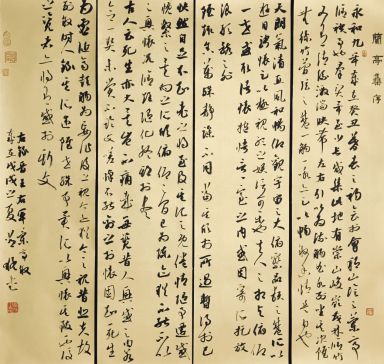 蘭亭集序
永和九年歲在癸丑暮春之初會於會稽山陰之蘭亭
修禊事也群賢畢至少長咸集此地有崇山峻嶺茂林修
竹又有清流激湍映帶左右引以為流觴曲水列坐其次雖無
絲竹管弦之盛一觴一詠亦足以暢敘幽情是日也
天朗氣清惠風和暢仰觀宇宙之大俯察品類之盛所以
遊目騁懷足以極視聽之娛信可樂也夫人之相與俯仰
一世或取諸懷抱悟言一室之內或因寄所託放
浪形骸之外
雖趣舍萬殊靜躁不同當其欣於所遇暫得於己
快然自足不知老之將至及其所之既倦情隨事遷感
慨係之矣向之所欣俯仰之間已為陳迹猶不能不以
之興懷況修短隨化終期於盡
古人云死生亦大矣豈不痛哉每覽昔人興感之由若
合一契未嘗不臨文嗟悼不能喻之於懷固知一死生
為虛誕齊彭殤為妄作後之視今亦猶今之視昔悲夫故
列敘時人錄其所述雖世殊事異所以興懷其致一也
後之覽者亦將有感於斯文
右錄晉王右軍蘭亭敘
歲在戊戌之夏